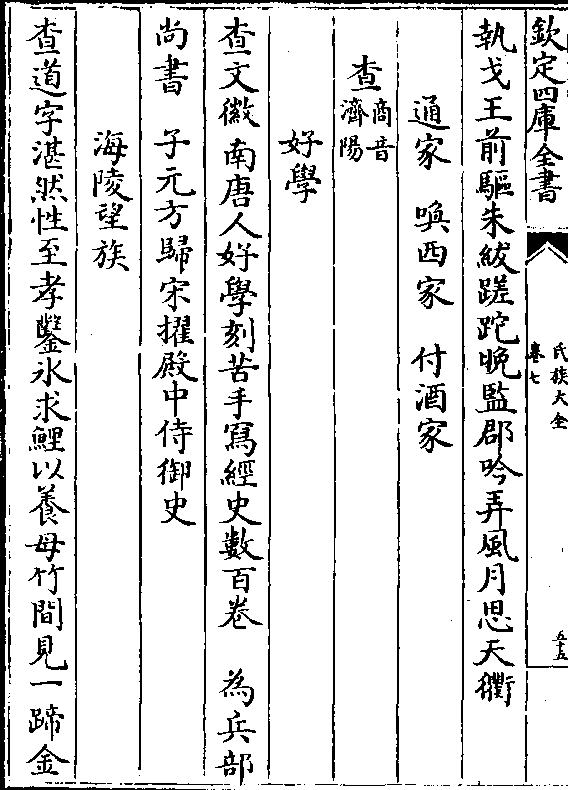 欽定四庫全書
氏族大全
卷七
五十五
執戈王前驅朱紱蹉跎晩監郡吟弄風月思天衢
通家　喚西家　付酒家
查商音濟陽
好學
查文徽南唐人好學刻苦手寫經史數百卷　為兵部
尚書　子元方歸宋擢殿中侍御史
海陵望族
查道字湛然性至孝鑿冰求鯉以養母竹間見一蹄金